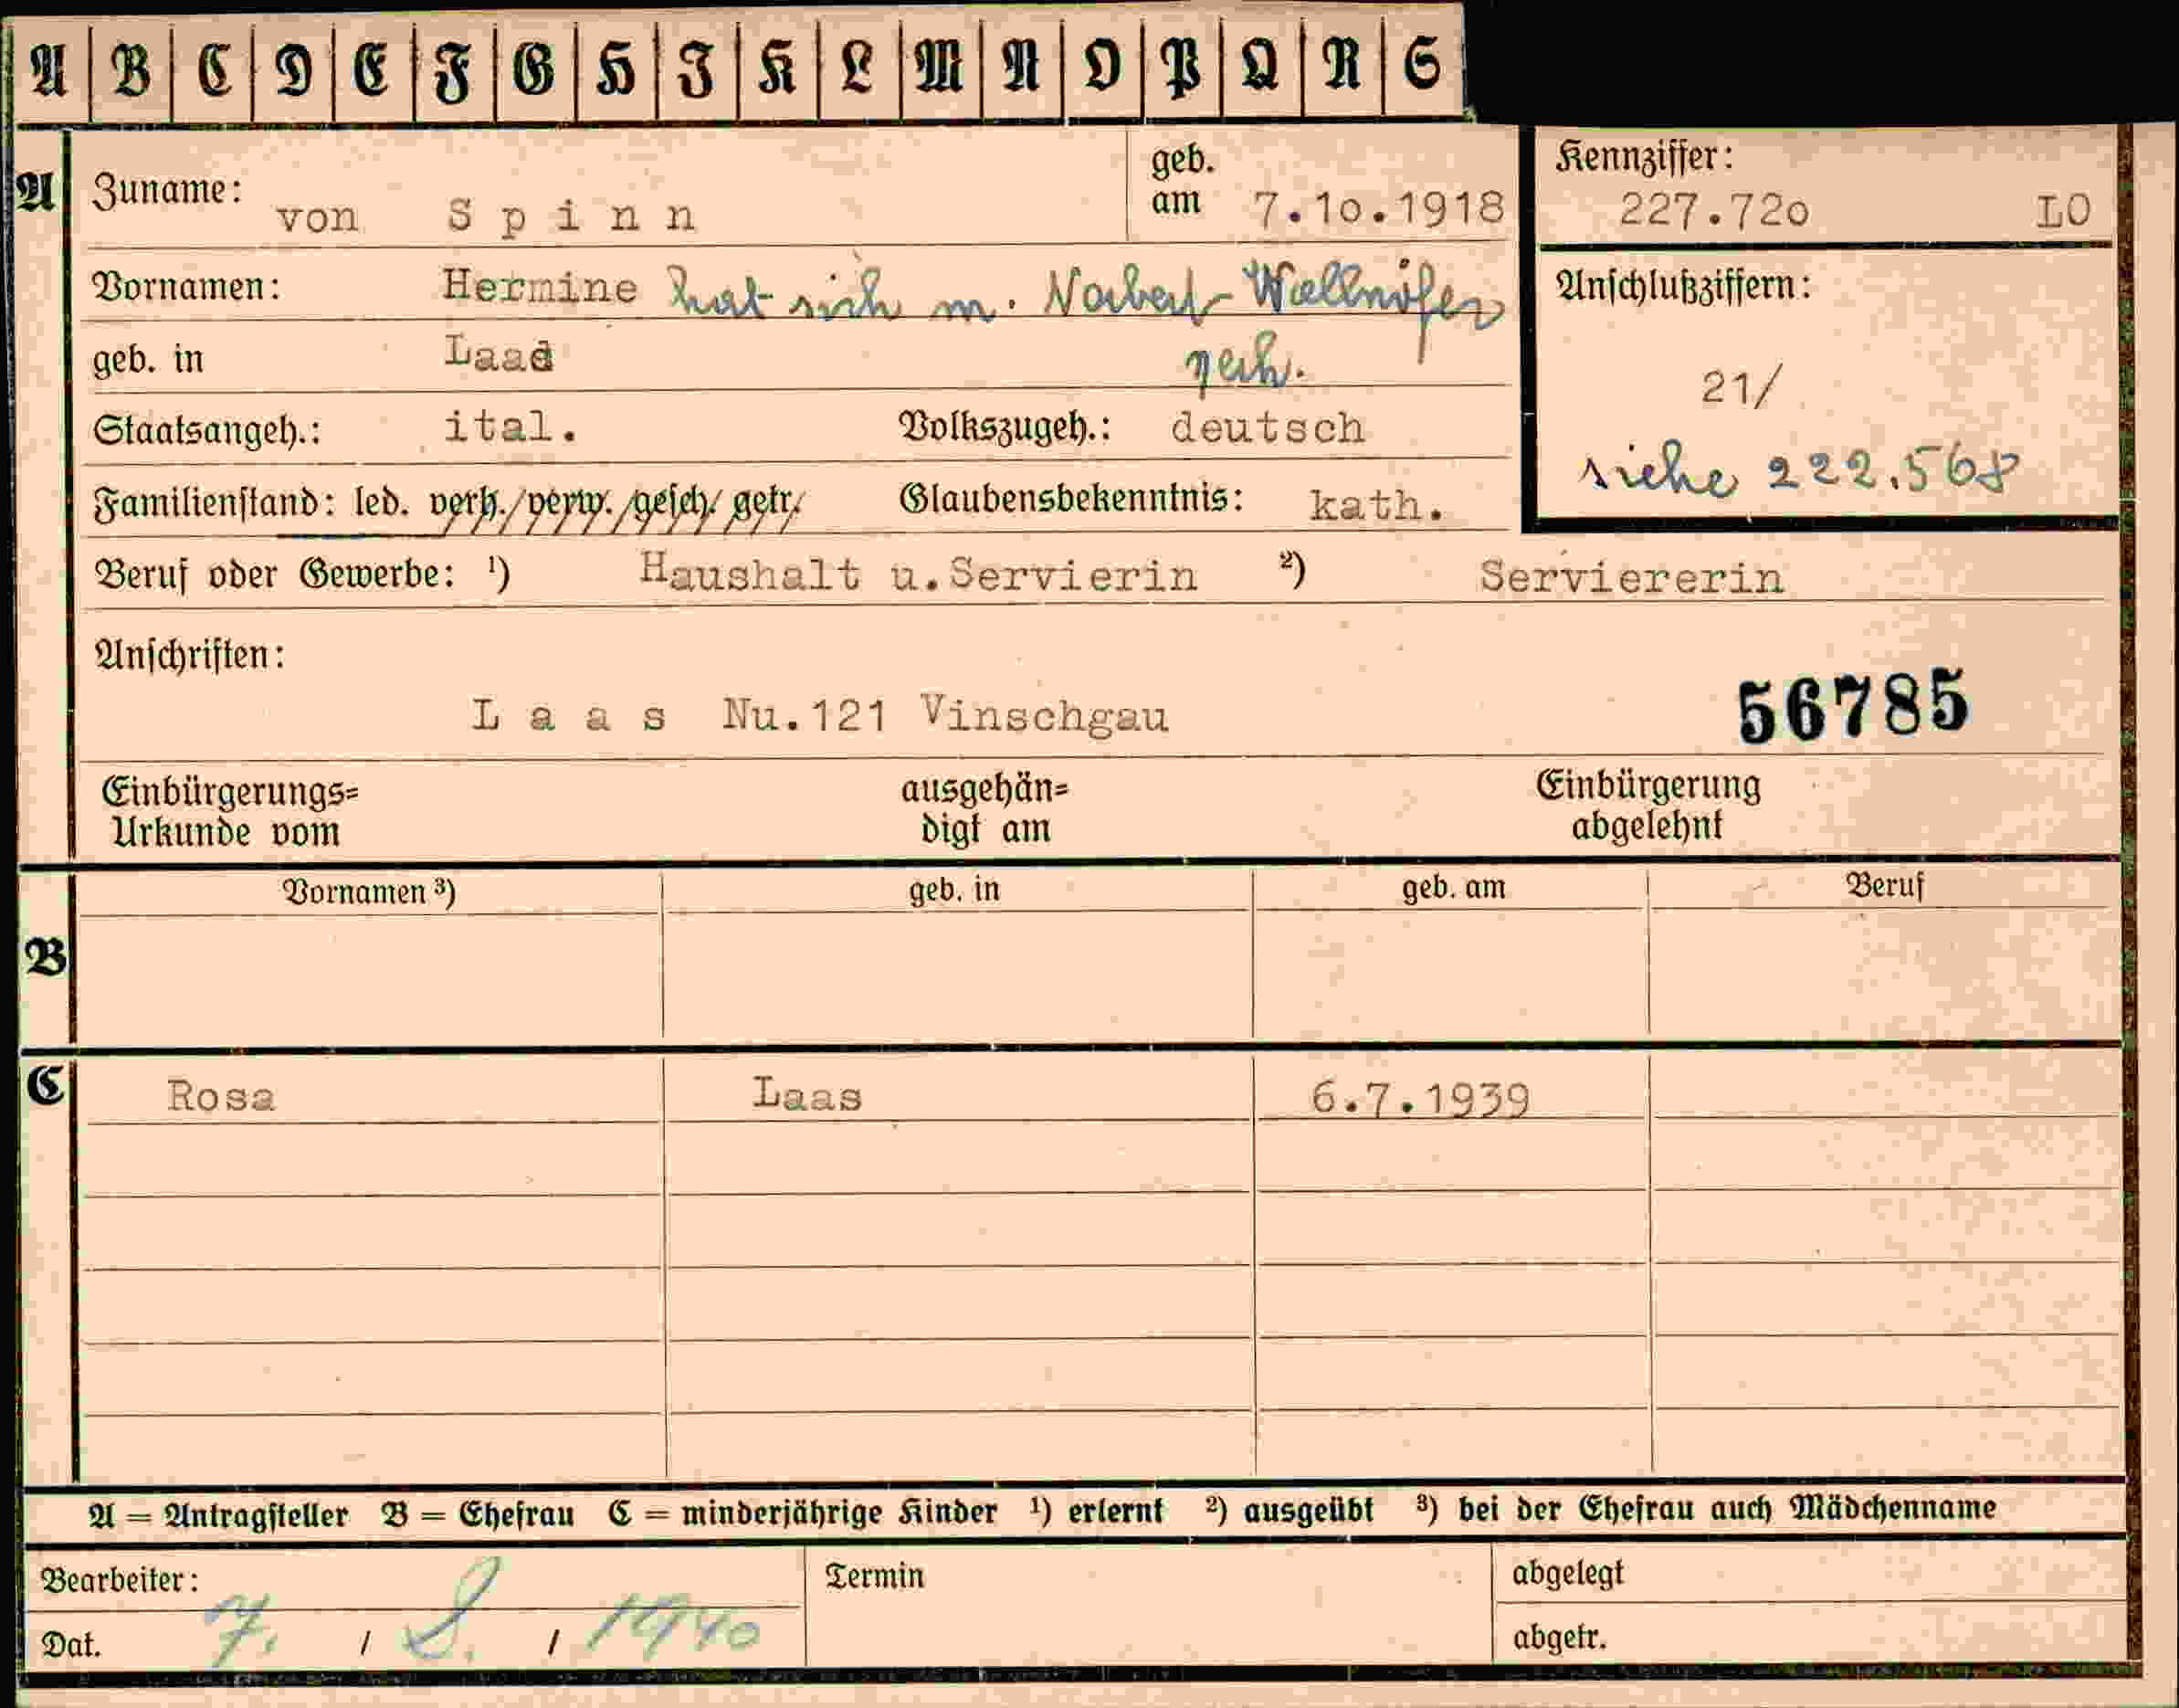 A B C D E F G H I K L M N O P Q R S
A Zuname: von S p i n n geb. am 7.10.1918 Kennziffer: 227.720 LO
Vornamen: Hermine hat sich m. Norbert Wallnöfer
verh.
geb. in Laas
Anschlußziffern:
21/
siehe 222.568
Staatsangeh.: ital. Volkszugeh.: deutsch
Familienstand: led. verh./verw./gesch/ getr/ Glaubensbekenntnis: kath.
Beruf oder Gewerbe: ¹) Haushalt u.Servierin ²) Serviererin
Anschriften:
L a a s Nu.121 Vinschgau
56785
Einbürgerungs=
Urkunde vom
ausgehän=
digt am
Einbürgerung
abgelehnt
B Vornamen ³) geb. in geb. am Beruf
C Rosa Laas 6.7.1939
A = Antragsteller B = Ehefrau C = minderjährige Kinder ¹) erlernt ²) ausgeübt ³) bei der Ehefrau auch Mädchenname
Bearbeiter: Termin abgelegt
Dat. 7. / 8. / 1940 abgetr.